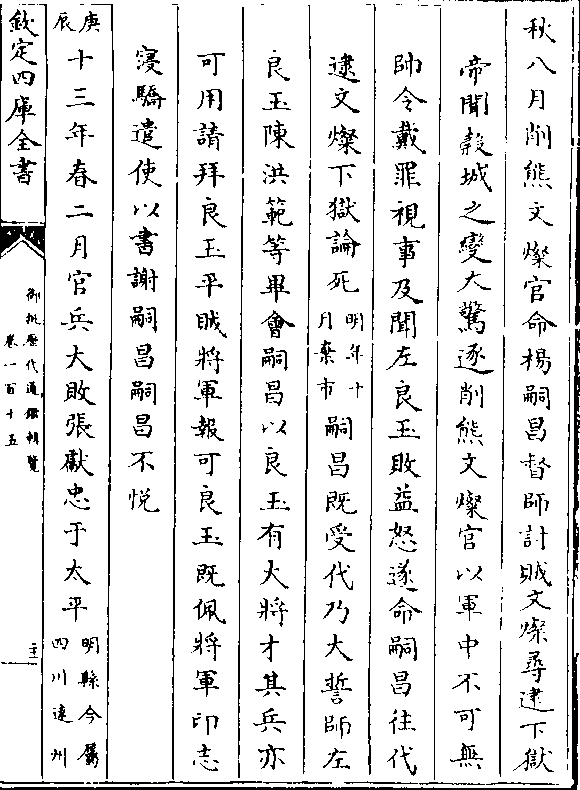 秋八月削熊文燦官命楊嗣昌督師討賊文燦尋逮下獄
帝聞穀城之變大驚逐削熊文燦官以軍中不可無
帥令戴罪視事及聞左良玉敗益怒遂命嗣昌往代
逮文燦下獄論死明年十月棄市嗣昌既受代乃大誓師左
良玉陳洪範等畢會嗣昌以良玉有大將才其兵亦
可用請拜良玉平賊將軍報可良玉既佩將軍印志
寖驕遣使以書謝嗣昌嗣昌不悅
庚辰十三年春二月官兵大敗張獻忠于太平明縣今屬四川達州
欽定四庫全書
御批歷代通鑑輯覽
卷一百十五